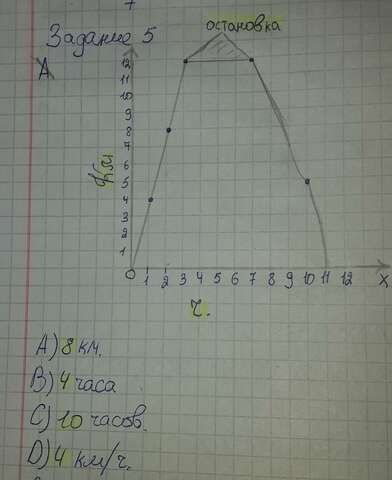 7
Задание 5
остановка
А
12
11
10
9
8
7
6
5
4
3
2
1
Км
0 1 2 3 4 5 6 7 8 9 10 11 12 х
ч.
А) 8 км.
В) 4 часа
С) 10 часов.
D) 4 км/ч.